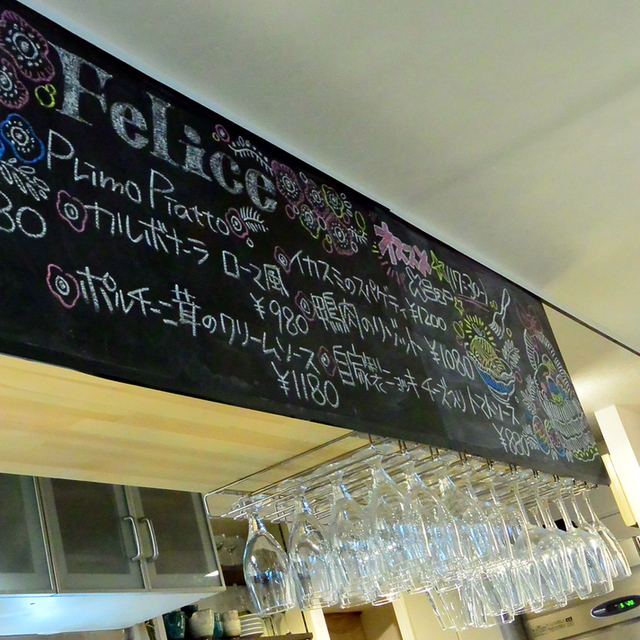 Felice
Primo Piatto
カルボナーラ ローマ風
¥980
ポルチーニ茸のクリームソース
¥1180
イカスミのスパゲティ
¥1200
鴨肉のリゾット
¥1080
自家製ニョッキ チーズ入りトマトソース
オススメ